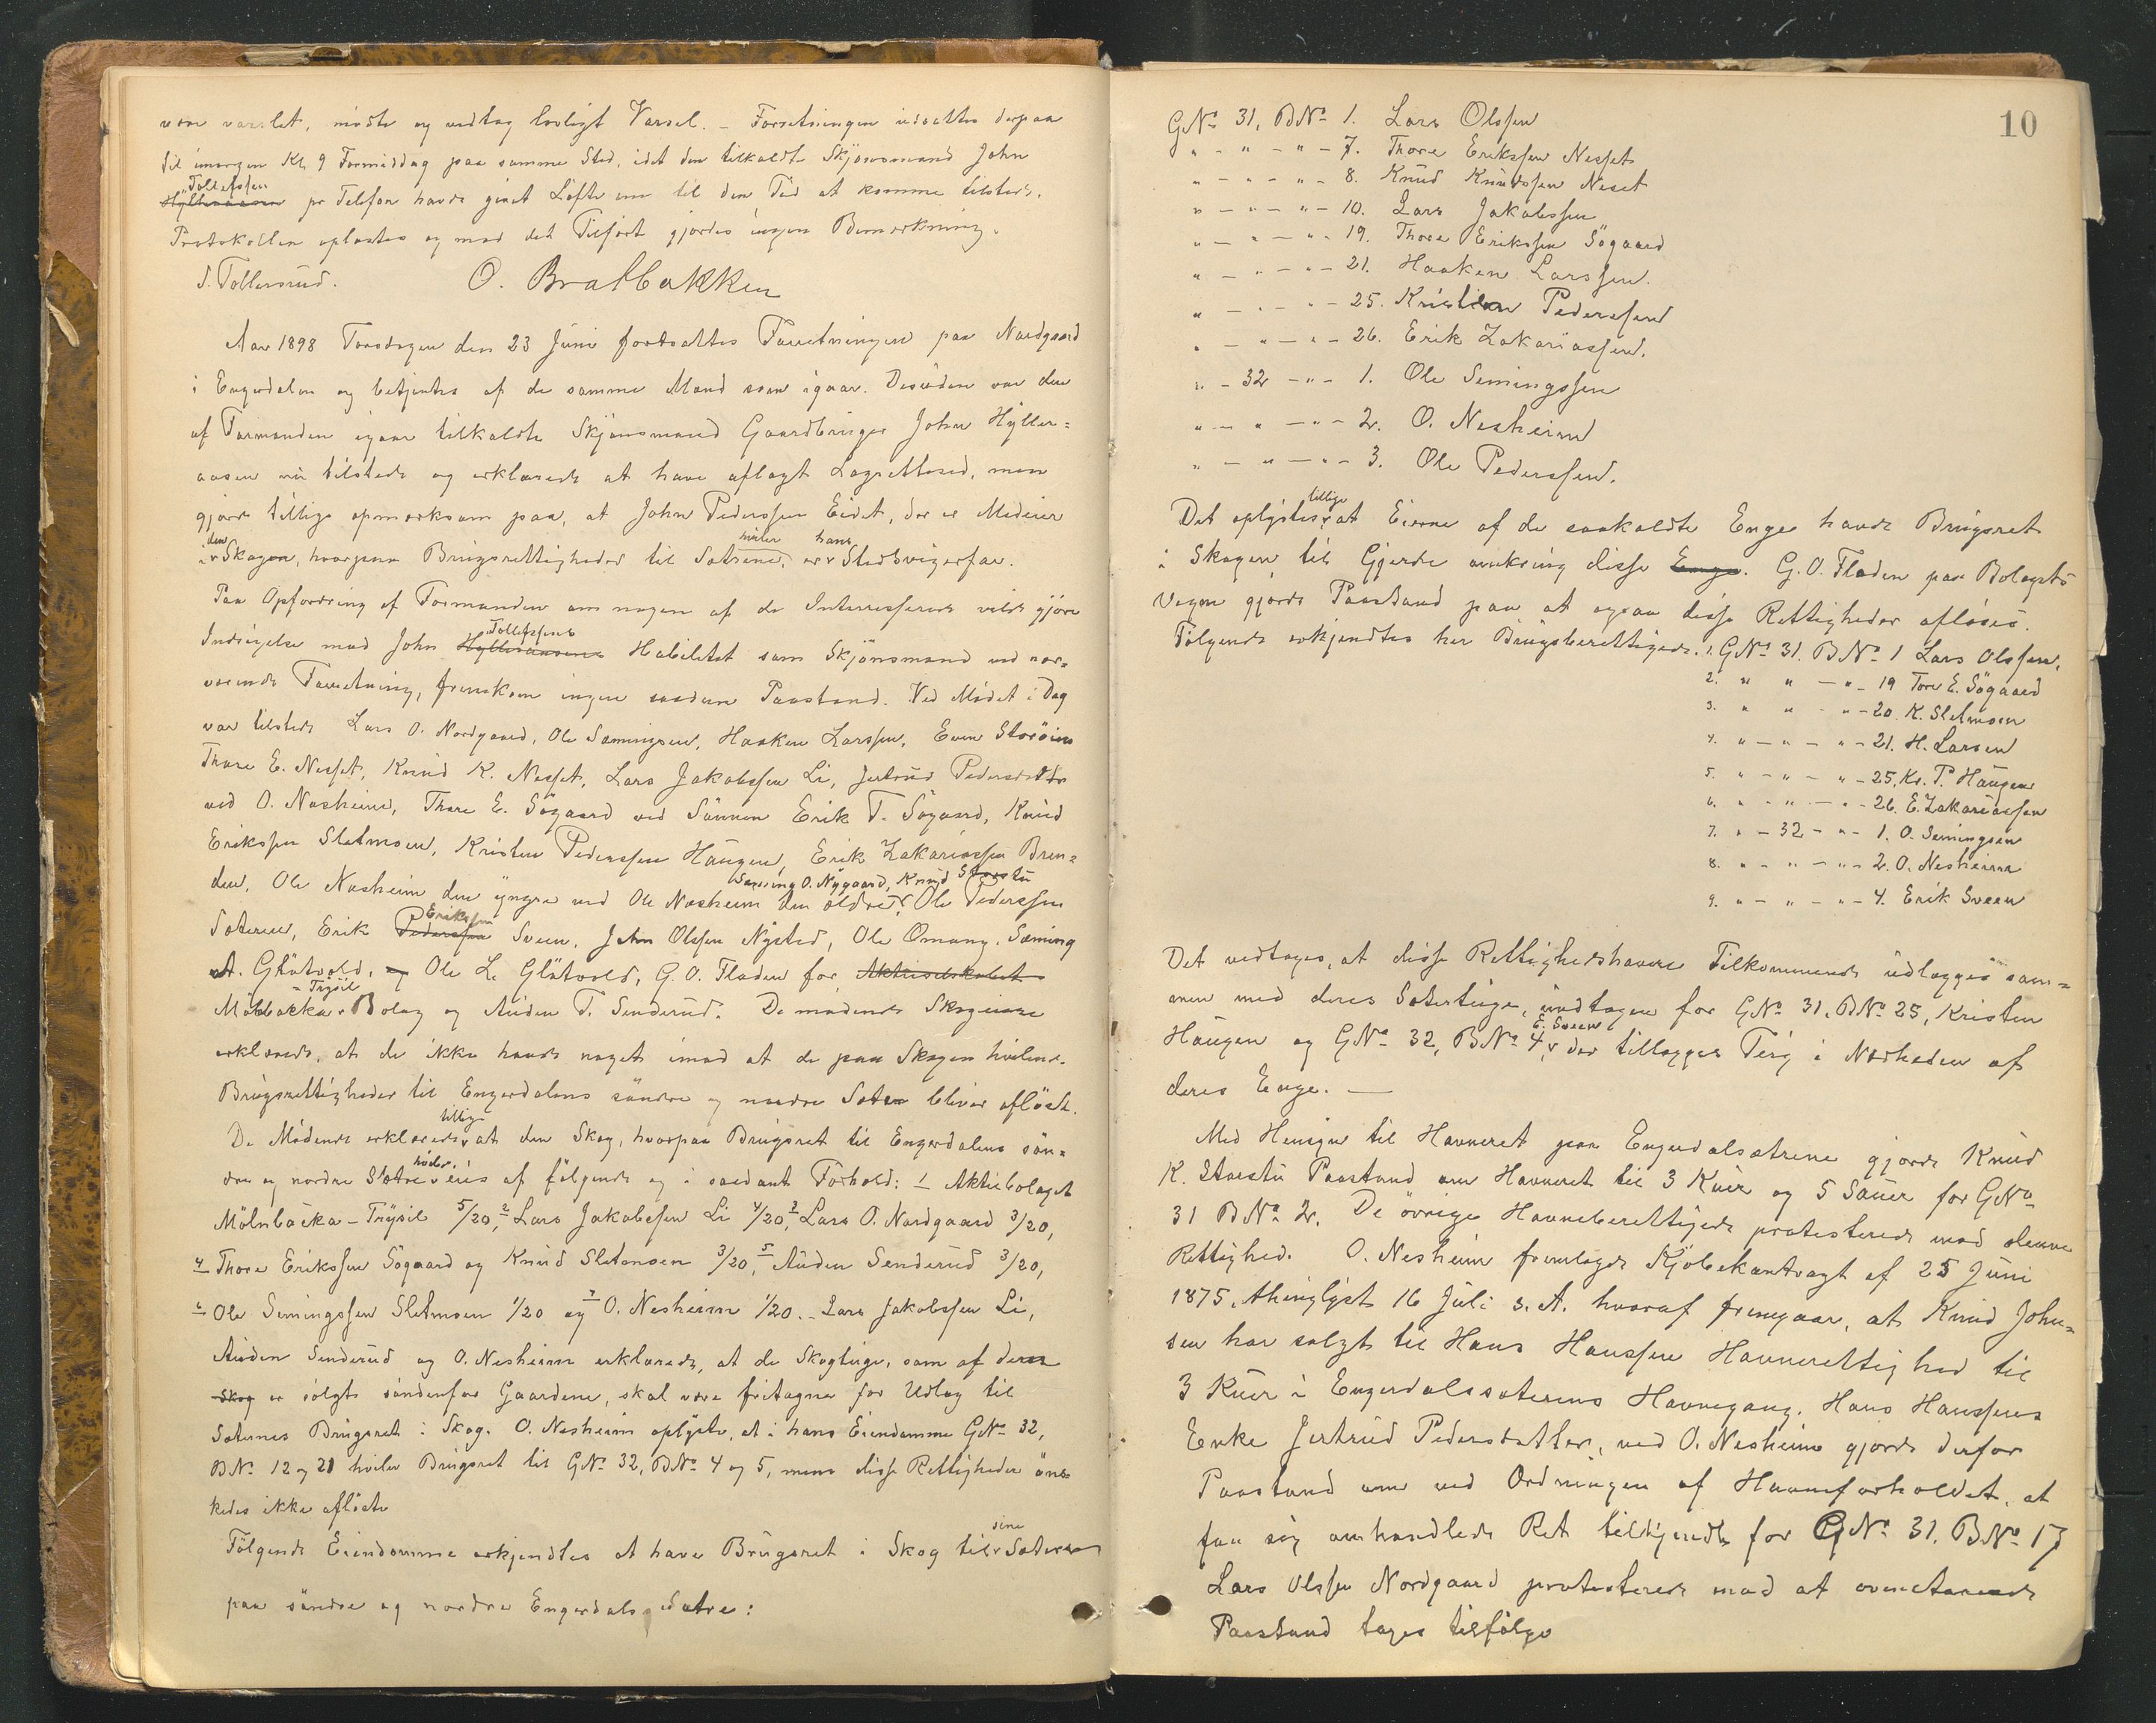 være varslet, mødte og vedtog lovligt Varsel. – Forretningen udsattes derpaa
til imorgen Kl. 9 Formiddag paa samme Sted, idet den tilkaldte Skjønsmand John
Tollefssen
Hylleraasen pr Telefon havde givet Løfte om til den Tid at komme tilstede.
Protokollen oplæstes og mod det Tilførte gjordes ingen Bemærkning.
S. Tollersrud. O. Bratbakken
Aar 1898 Torsdagen den 23 Juni fortsattes Forretningen paa Nordgaard
i Engerdalen og betjentes af de samme Mænd som igaar. Desuden var den
af Formanden igaar tilkaldte Skjønsmand Gaardbruger John Hyller=
aasen nu tilstede og erklærede at have aflagt Lagretteed, men
gjorde tillige opmærksom paa, at John Pederssen Eidet, der er Medeier
i den Skogen, hvorpaa Brugsrettigheder til Sætrene hviler, er hans Stedsvigerfar.
Paa Opfordring af Formanden om nogen af de Interesserede vilde gjøre
Indsigelse mod John Hylleraasens Tollefssens Habilitet som Skjønsmand ved nær=
værende Forretning, fremkom ingen saadan Paastand. Ved Mødet i Dag
var tilstede Lars O. Nordgaard, Ole Sæmingsen, Haaken Larssen, Even Storøien
Thore E. Nesset, Knud K. Nesset, Lars Jakobssen Li, Jertrud Pedersdatter
ved O. Nesheim, Thore E. Søgaard ved Sønnen Erik T. Søgaard, Knud
Erikssen Sletmoen, Kristen Pederssen Haugen, Erik Zakariassen Bren=
Sæming O. Nygaard, Knud Storstu
den, Ole Nesheim den yngre ved Ole Nesheim den ældre, Ole Pederssen
Sæteren, Erik Pederssen Erikssen Sveen, John Olssen Nysted, Ole Omang, Sæming
A. Gløtvold, og Ole L. Gløtvold, G. O. Floden for Aktieselskabet
Mölnbacka-Trysil Bolag og Auden T. Senderud. De mødende Skogeiere
erklærede, at de ikke havde noget imod at de paa Skogen hvilende
Brugsrettigheder til Engerdalens søndre og nordre Sæter bliver afløst.
De Mødende erklærede tillige at den Skog, hvorpaa Brugsret til Engerdalens søn=
dre og nordre Sætre hviler, eies af følgende og i saadant Forhold: 1 Aktiebolaget
Mölnbacka-Trysil 5/20, 2 Lars Jakobssen Li 4/20, 3 Lars O. Nordgaard 3/20,
4 Thore Erikssen Søgaard og Knud Sletmoen 3/20, 5 Auden Senderud 3/20,
6 Ole Semingssen Sletmoen 1/20 og 7 O. Nesheim 1/20. – Lars Jakobssen Li,
Auden Senderud og O. Nesheim erklærede, at de Skogteige, som af deres
Skog er solgt søndenfor Gaardene, skal være fritagne for Udlæg til
Sæternes Brugsret i Skog. O. Nesheim oplyste, at i hans Eiendomme GNo 32,
BNo 12 og 21 hviler Brugsret til GNo 32, BNo 4 og 5, mens disse Rettigheder øns=
kedes ikke afløste
Følgende Eiendomme erkjendtes at have Brugsret i Skog til sine Sætere
paa søndre og nordre Engerdalssætre:
10
GNo 31, BNo 1. Lars Olssen
" - " - " - 7. Thore Erikssen Nesset
" - " - " - 8. Knud Knudssen Neset
" - " - " - 10. Lars Jakobssen
" - " - " - 19. Thore Erikssen Søgaard
" - " - " - 21. Haaken Larssen.
" - " - " - 25. Kristen Pederssen
" - " - " - 26. Erik Zakariassen.
" - 32 - " - 1. Ole Semingssen
" - " - " - 2. O. Nesheim
" - " - " - 3. Ole Pederssen.
Det oplystes tillige at Eierne af de saakaldte Enge havde Brugsret
i Skogen til Gjerde omkring disse Enge. G. O. Floden paa Bolagets
Vegne gjorde Paastand paa at ogsaa disse Rettigheder afløses.
Følgende erkjendtes her Brugsberettigede. 1. GNo 31. BNo 1 Lars Olssen.
2. " " - " - 19 Tore E. Søgaard
3. " " - " - 20. K. Sletmoen
4. " - " - " - 21. H. Larsen
5. " - " - " - 25, Kr. P. Haugen
6. " - " - " - 26. E. Zakariassen
7. " - 32 - " - 1. O. Semingsen
8. " - " - " - 2. O. Nesheim
9. " - " - " - 4. Erik Sveen
Det vedtoges, at disse Rettighedshavere Tilkommende udlægges sam=
men med deres Sæterteige, undtagen for GNo 31, BNo 25, Kristen
Haugen og GNo 32, BNo 4, E. Sveen der tillægges Teig i Nærheden af
deres Enge. —
Med Hensyn til Havneret paa Engerdalssætrene gjorde Knud
K. Storstu Paastand om Havneret til 3 Kuer og 5 Sauer for GNo
31 BNo 2. De øvrige Havneberettigede protesterede mod denne
Rettighed. O. Nesheim fremlagde Kjøbekontragt af 25 Juni
1875, thinglyst 16 Juli s. A. hvoraf fremgaar, at Knud John=
sen har solgt til Hans Hanssen Havnerettighed til
3 Kuer i Engerdalssæterens Havnegang. Hans Hanssens
Enke Jertrud Pedersdatter, ved O. Nesheim gjorde derfor
Paastand om ved Ordningen af Havneforholdet, at
faa sig omhandlede Ret tilkjendt for GNo 31, BNo 17
Lars Olssen Nordgaard protesterede mod at ovenstaaende
Paastand tages tilfølge